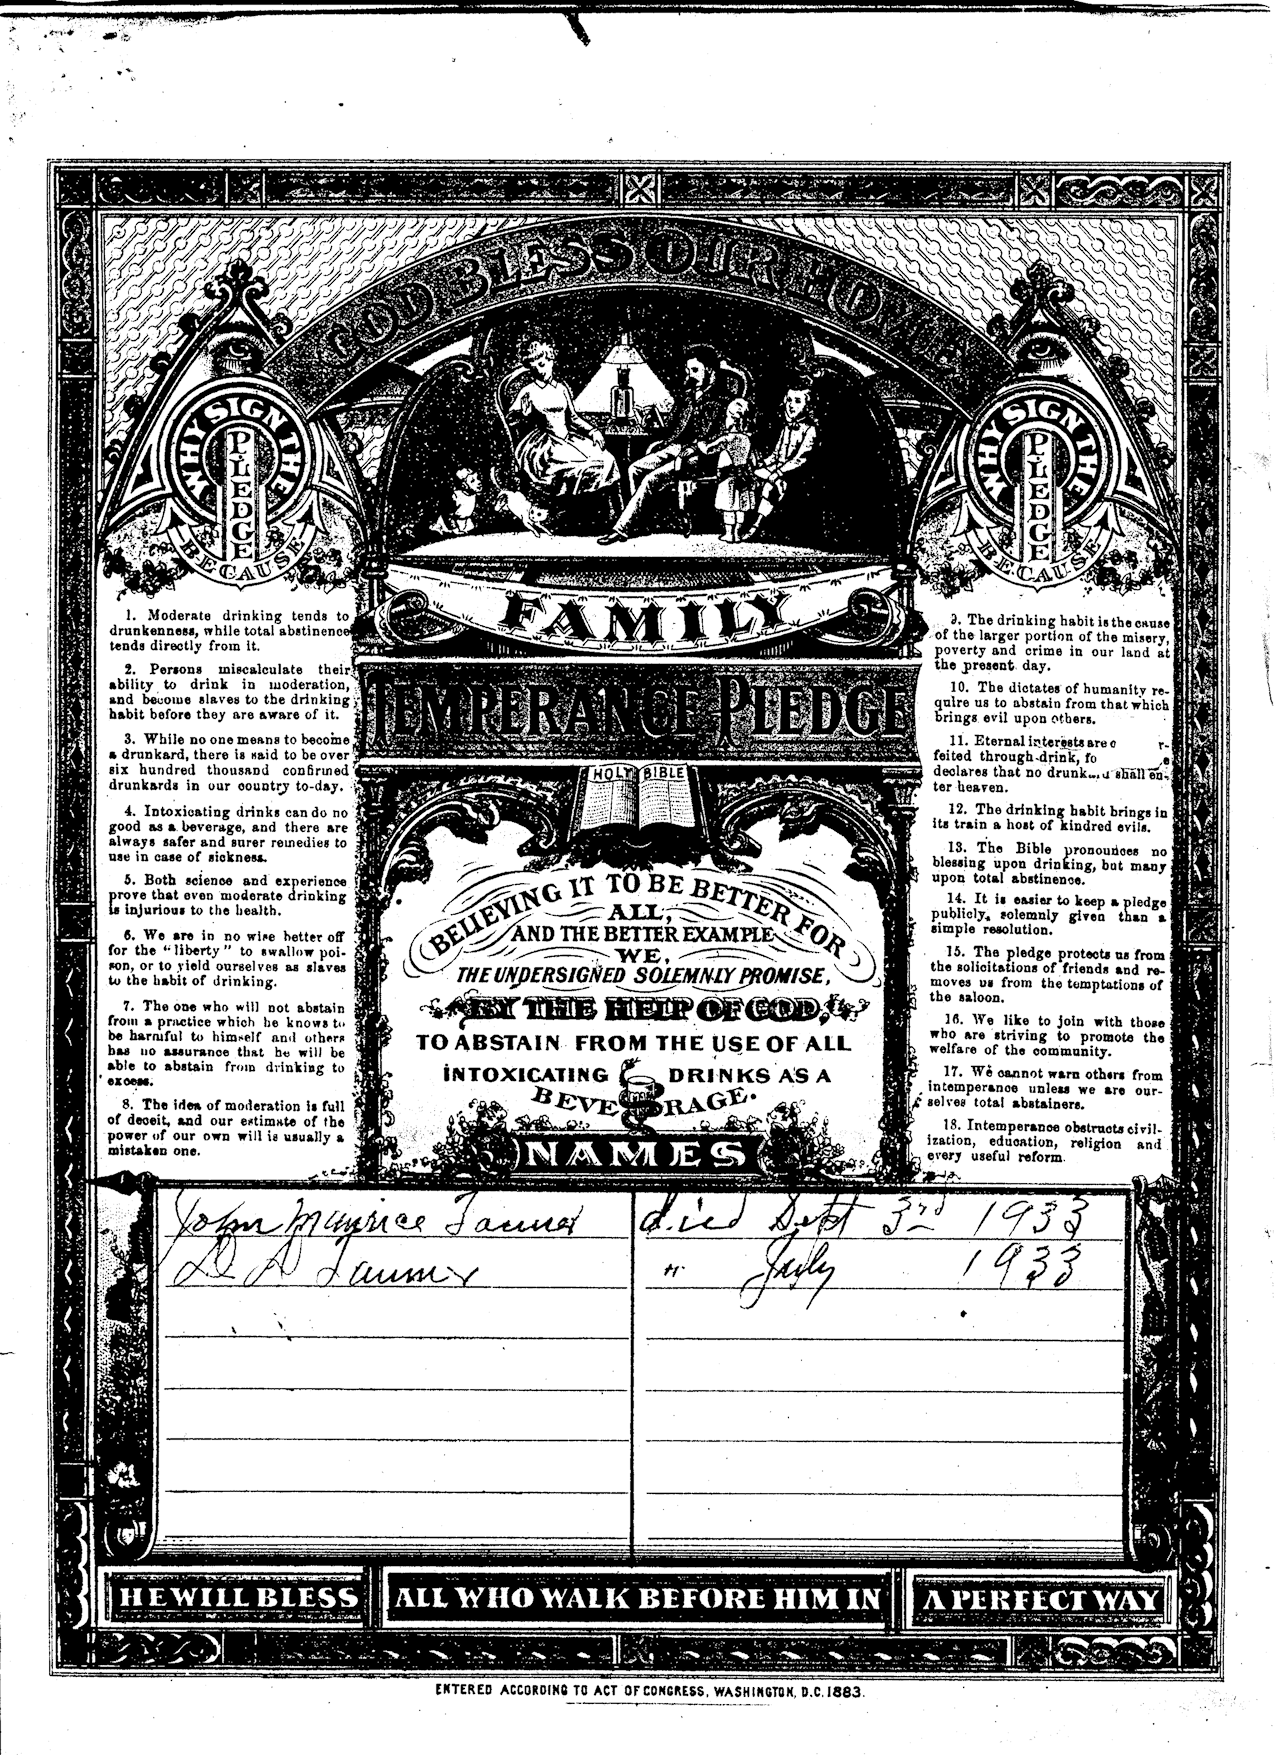 GOD BLESS OUR HOME
WHY SIGN THE
PLEDGE
BECAUSE
WHY SIGN THE
PLEDGE
BECAUSE
FAMILY
TEMPERANCE PLEDGE
1. Moderate drinking tends to
drunkenness, while total abstinence
tends directly from it.
2. Persons miscalculate their
ability to drink in moderation,
and become slaves to the drinking
habit before they are aware of it.
3. While no one means to become
a drunkard, there is said to be over
six hundred thousand confirmed
drunkards in our country to-day.
4. Intoxicating drinks can do no
good as a beverage, and there are
always safer and surer remedies to
use in case of sickness.
5. Both science and experience
prove that even moderate drinking
is injurious to the health.
6. We are in no wise better off
for the "liberty" to swallow poi-
son, or to yield ourselves as slaves
to the habit of drinking.
7. The one who will not abstain
from a practice which he knows to
be harmful to himself and others
has no assurance that he will be
able to abstain from drinking to
excess.
8. The idea of moderation is full
of deceit, and our estimate of the
power of our own will is usually a
mistaken one.
HOLY BIBLE
BELIEVING IT TO BE BETTER FOR
ALL,
AND THE BETTER EXAMPLE
WE,
THE UNDERSIGNED SOLEMNLY PROMISE,
BY THE HELP OF GOD,
TO ABSTAIN FROM THE USE OF ALL
INTOXICATING DRINKS AS A
BEVERAGE.
NAMES
9. The drinking habit is the cause
of the larger portion of the misery,
poverty and crime in our land at
the present day.
10. The dictates of humanity re-
quire us to abstain from that which
brings evil upon others.
11. Eternal interests are
feited through drink, fo
declares that no drunk shall en-
ter heaven.
12. The drinking habit brings in
its train a host of kindred evils.
13. The Bible pronounces no
blessing upon drinking, but many
upon total abstinence.
14. It is easier to keep a pledge
publicly, solemnly given than a
simple resolution.
15. The pledge protects us from
the solicitations of friends and re-
moves us from the temptations of
the saloon.
16. We like to join with those
who are striving to promote the
welfare of the community.
17. We cannot warn others from
intemperance unless we are our-
selves total abstainers.
18. Intemperance obstructs civil-
ization, education, religion and
every useful reform.
John Maurice Tanner died Sept 3rd 1933
D D Tanner " July 1933
HE WILL BLESS ALL WHO WALK BEFORE HIM IN A PERFECT WAY
ENTERED ACCORDING TO ACT OF CONGRESS, WASHINGTON, D.C. 1883.